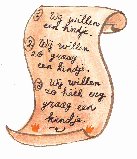 1) Wij willen
een kindje.
2) Wij willen
zo graag
een kindje.
3) Wij willen
zo hiel erg
graag een
kindje.